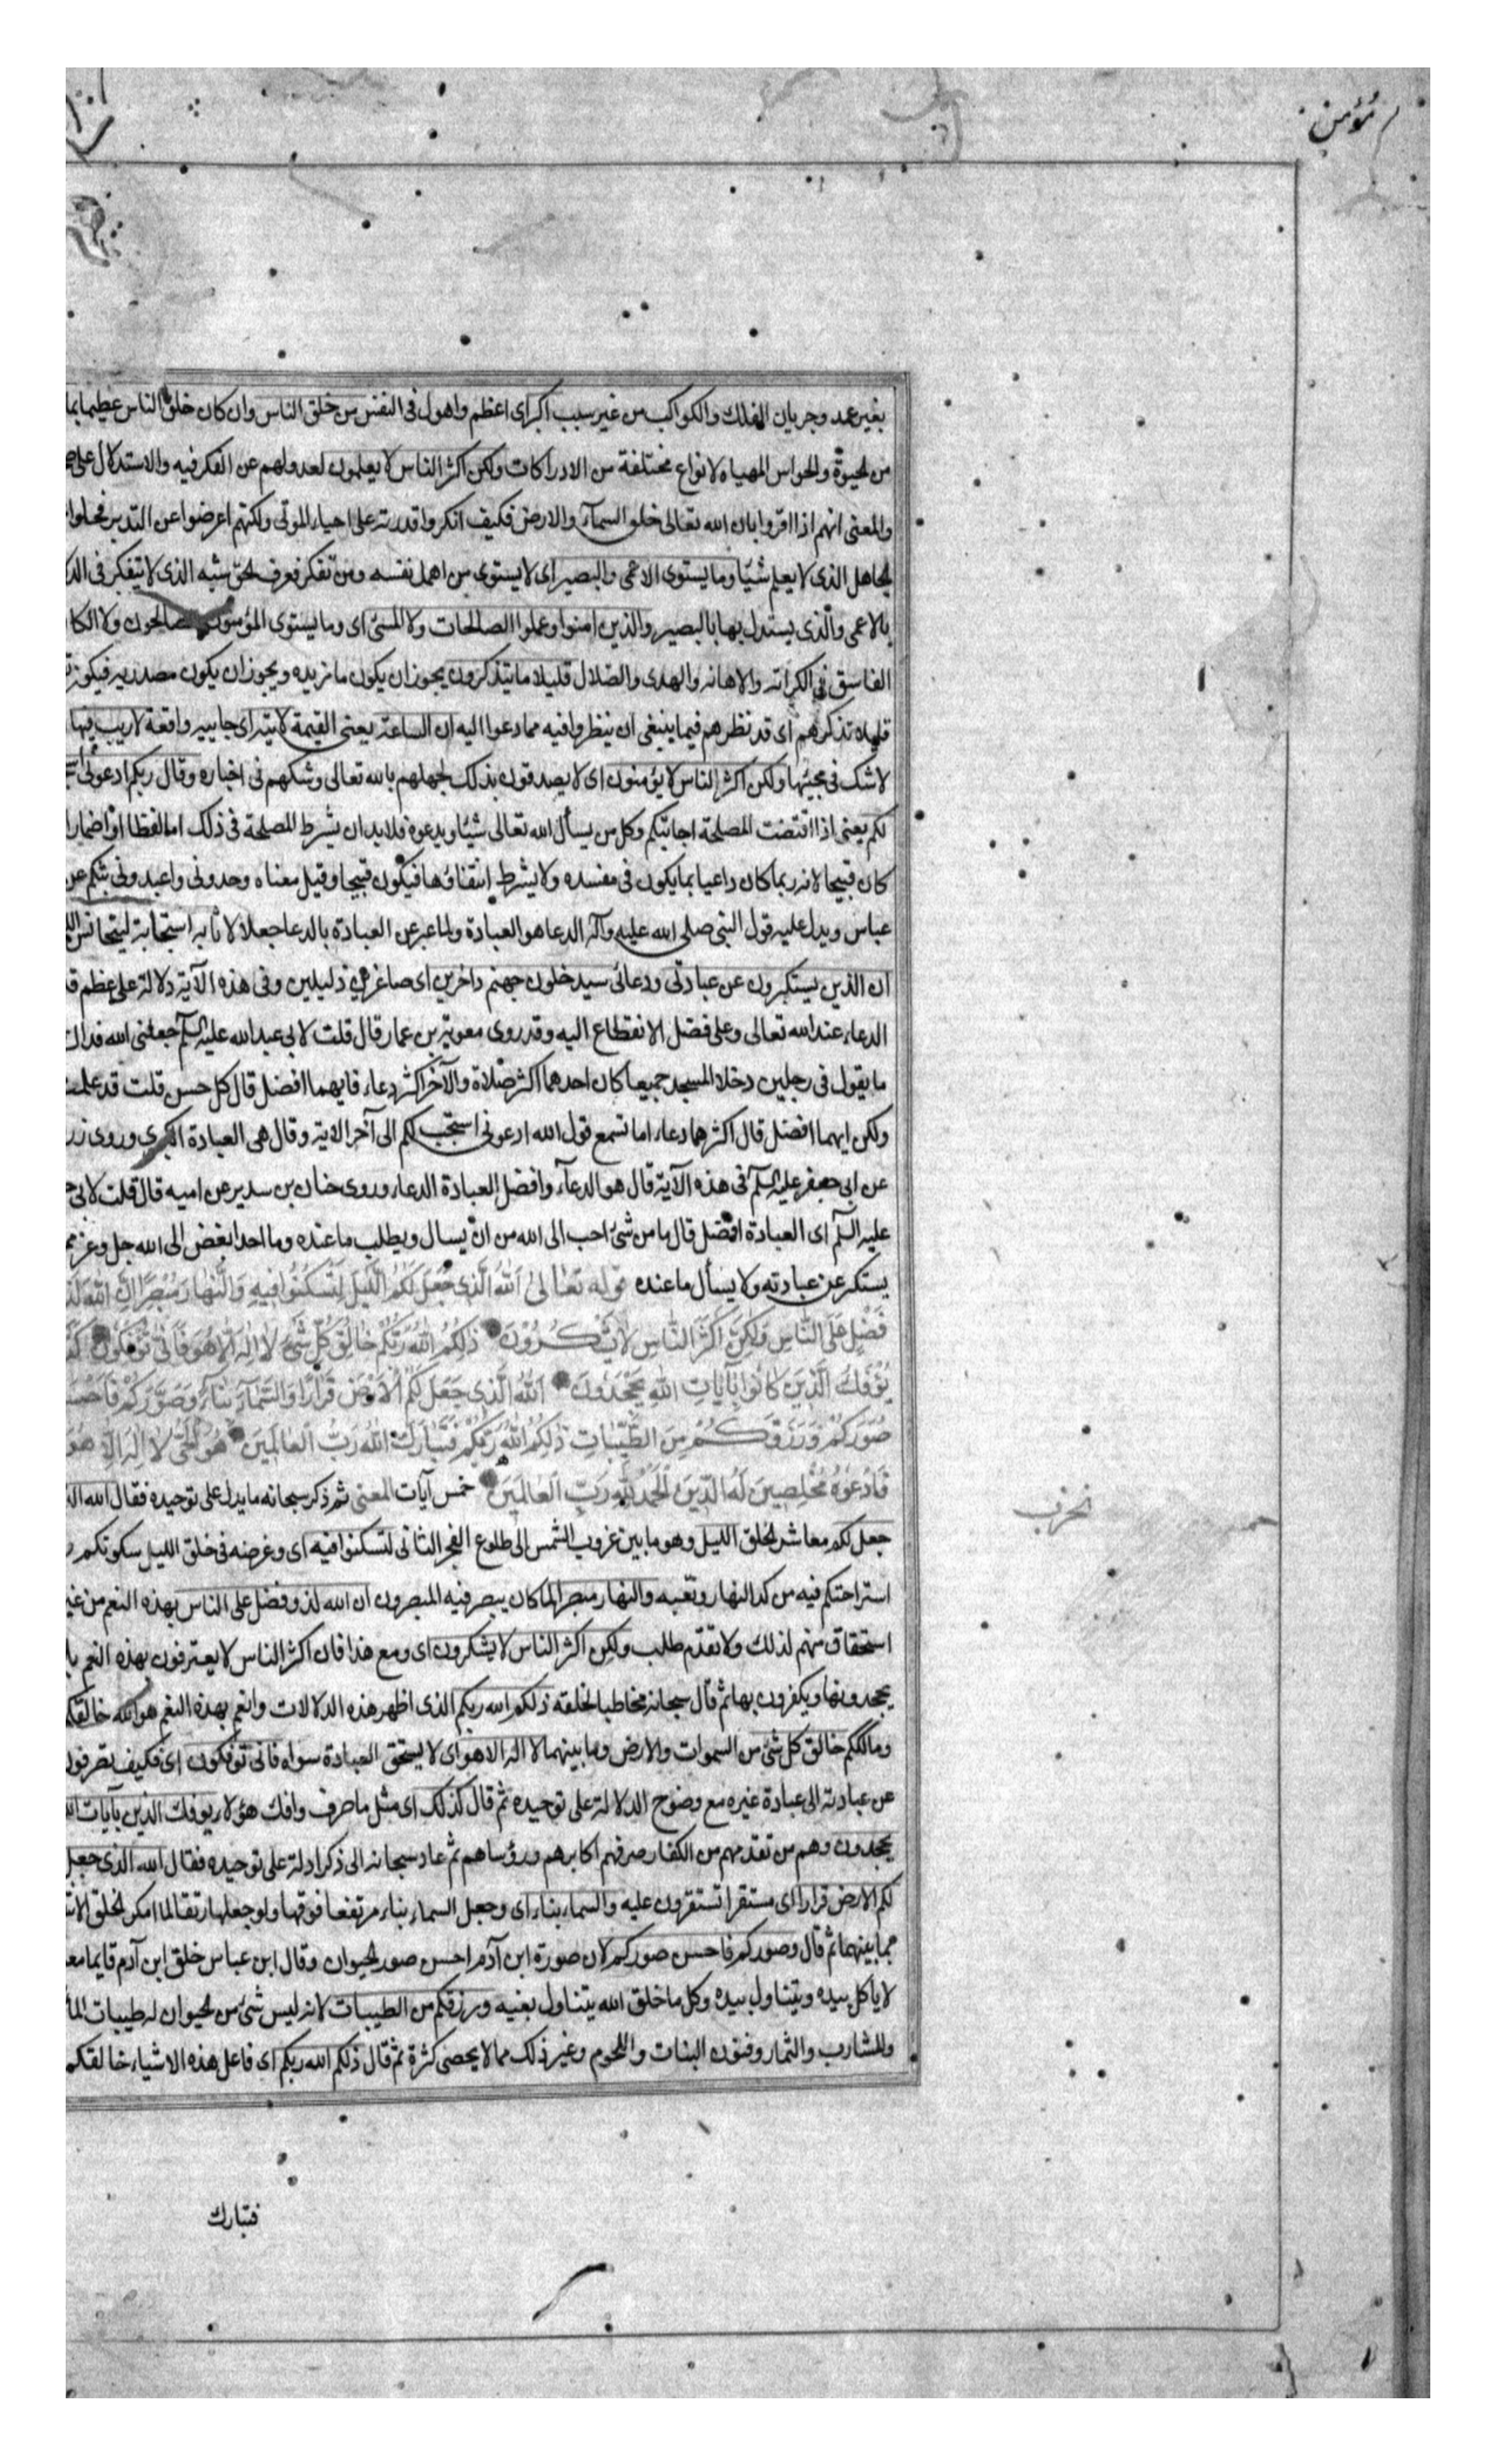 مؤمن
بغير عمد وجريان الفلك والكواكب من غير سبب اكبر اى اعظم واهول فى النفس من خلق الناس وان كان خلق الناس عظيما بما
من الحيوة والحواس المهياه لانواع مختلفة من الادراكات ولكن اكثر الناس لا يعلمون لعدولهم عن الفكر فيه والاستدلال على
والمعنى انهم اذا اقروا بان الله تعالى خلق السمآء والارض فكيف انكروا قدرته على احياء الموتى ولكنهم اعرضوا عن التدبر فحلوا
الجاهل الذى لا يعلم شيئا وما يستوى الاعمى والبصير اى لا يستوى من اهمل نفسه ومن تفكر فعرف الحق شبه الذى لا يتفكر فى
بالاعمى والذى يستدل بها بالبصير والذين امنوا وعملوا الصالحات ولا المسئ اى وما يستوى المؤمنون الصالحون ولا
الفاسق فى الكرامه والاهانه والهدى والضلال قليلا ما يتذكرون يجوز ان يكون ما مزيده ويجوز ان يكون مصدريه فيكون
قليلا تذكرهم اى قد نظرهم فيما ينبغى ان ينظروا فيه مما دعوا اليه ان الساعة يعنى القيمة لاتية اى جاييه واقعة لا ريب فيها
لا شك فى مجيئها ولكن اكثر الناس لا يؤمنون اى لا يصدقون بذلك لجهلهم بالله تعالى وشكهم فى اخباره وقال ربكم ادعونى
لكم يعنى اذا اقتضت المصلحة اجابتكم وكل من يسأل الله تعالى شيئا ويدعوه فلا بد ان يشرط المصلحة فى ذلك اما لفظا او اضمارا
كان قبيحا لانه ربما كان داعيا بما يكون فى مفسده ولا يشرط انتفاؤها فيكون قبيحا وقيل معناه وحدونى واعبدونى اثبكم عن
عباس ويدل عليه قول النبى صلى الله عليه وآله الدعا هو العبادة ولما عبر عن العبادة بالدعا جعل الاثابه استجابة ليتجانس
ان الذين يستكبرون عن عبادتى ودعائى سيدخلون جهنم داخرين اى صاغرين ذليلين وفى هذه الآية دلالة على عظم
الدعاء عند الله تعالى وعلى فضل الانقطاع اليه وقد روى معوية بن عمار قال قلت لابى عبد الله عليه السلم جعلنى الله فداك
ما يقول فى رجلين دخلا المسجد جميعا كان احدهما اكثر صلاة والآخر اكثر دعاء فايهما افضل قال كل حسن قلت قد علمت
ولكن ايهما افضل قال اكثرهما دعاء اما تسمع قول الله ادعونى استجب لكم الى آخر الاية وقال هى العبادة الكبرى وروى
عن ابى جعفر عليه السلم فى هذه الآية قال هو الدعآء وافضل العبادة الدعاء وروى حنان بن سدير عن ابيه قال قلت لابى
عليه السلم اى العبادة افضل قال ما من شئ احب الى الله من ان يسال ويطلب ما عنده وما احد ابغض الى الله جل وعز
يستكبر عن عبادته ولا يسأل ما عنده قوله تعالى الله الذى جعل لكم الليل لتسكنوا فيه والنهار مبصرا ان الله
فضل على الناس ولكن اكثر الناس لا يشكرون ذلكم الله ربكم خالق كل شئ لا اله الا هو فانى تؤفكون
يؤفك الذين كانوا بآيات الله يجحدون الله الذى جعل لكم الارض قرارا والسمآء بنآء وصوركم فاحسن
صوركم ورزقكم من الطيبات ذلكم الله ربكم فتبارك الله رب العالمين هو الحى لا اله الا هو
فادعوه مخلصين له الدين الحمد لله رب العالمين خمس آيات المعنى ثم ذكر سبحانه ما يدل على توحيده فقال الله
جعل لكم معاشر الخلق الليل وهو ما بين غروب الشمس الى طلوع الفجر الثانى لتسكنوا فيه اى وغرضه فى خلق الليل سكونكم
استراحتكم فيه من كد النهار وتعبه والنهار مبصرا لما كان يبصر فيه المبصرون ان الله لذو فضل على الناس بهذه النعم من غير
استحقاق منهم لذلك ولا تقدم طلب ولكن اكثر الناس لا يشكرون اى ومع هذا فان اكثر الناس لا يعترفون بهذه النعم
يجحدونها ويكفرون بها ثم قال سبحانه مخاطبا لخلقه ذلكم الله ربكم الذى اظهر هذه الدلالات وانعم بهذه النعم هو الله خالقكم
ومالككم خالق كل شئ من السموات والارض وما بينهما لا اله الا هو اى لا يستحق العبادة سواه فانى توفكون اى فكيف تصرفون
عن عبادته الى عبادة غيره مع وضوح الدلالة على توحيده ثم قال كذلك اى مثل ما صرف وافك هؤلاء يوفك الذين بآيات
يجحدون وهم من تقدمهم من الكفار صرفهم اكابرهم ورؤساهم ثم عاد سبحانه الى ذكر ادلة على توحيده فقال الله الذى جعل
لكم الارض قرارا اى مستقرا تستقرون عليه والسماء بناء اى وجعل السماء بناء مرتفعا فوقها ولو جعلها رتقا لما امكن الخلق
مما بينهما ثم قال وصوركم فاحسن صوركم لان صورة ابن آدم احسن صور الحيوان وقال ابن عباس خلق ابن آدم قايما
لا ياكل بيده ويتناول بيده وكل ما خلق الله يتناول بفيه ورزقكم من الطيبات لانه ليس شئ من الحيوان له طيبات
والمشارب والثمار وفنون النبات واللحوم وغير ذلك مما لا يحصى كثرة ثم قال ذلكم الله ربكم اى فاعل هذه الاشياء خالقكم
فتبارك